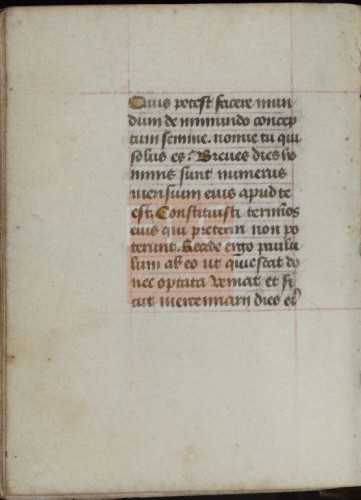 Quis potest facere mun
dum de inmundo concep
tum semine. nonne tu qui
solus es. Breues dies ho
minis sunt numerus
mensium eius apud te
est. Constituisti termios
eius qui preteriri non po
terunt. Recede ergo paulu
lum ab eo ut quiescat do
nec optata veniat et si
cut mercennarii dies eiꝰ